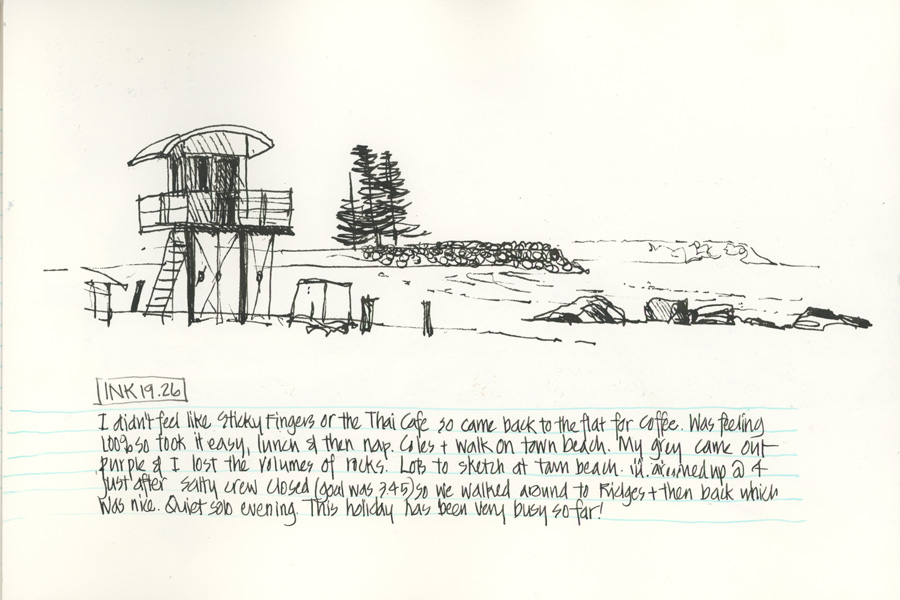 INK19.26
I didn't feel like Sticky Fingers or the Thai Cafe so came back to the flat for coffee. Was feeling
100% so took it easy, lunch & then nap. Coles + walk on town beach. My grey came out
purple & I lost the volumes of rocks. Lots to sketch at town beach. arrived up @ 4
just after Salty crew closed (goal was 3.45) so we walked around to Ridges + then back which
was nice. Quiet solo evening. This holiday has been very busy so far!